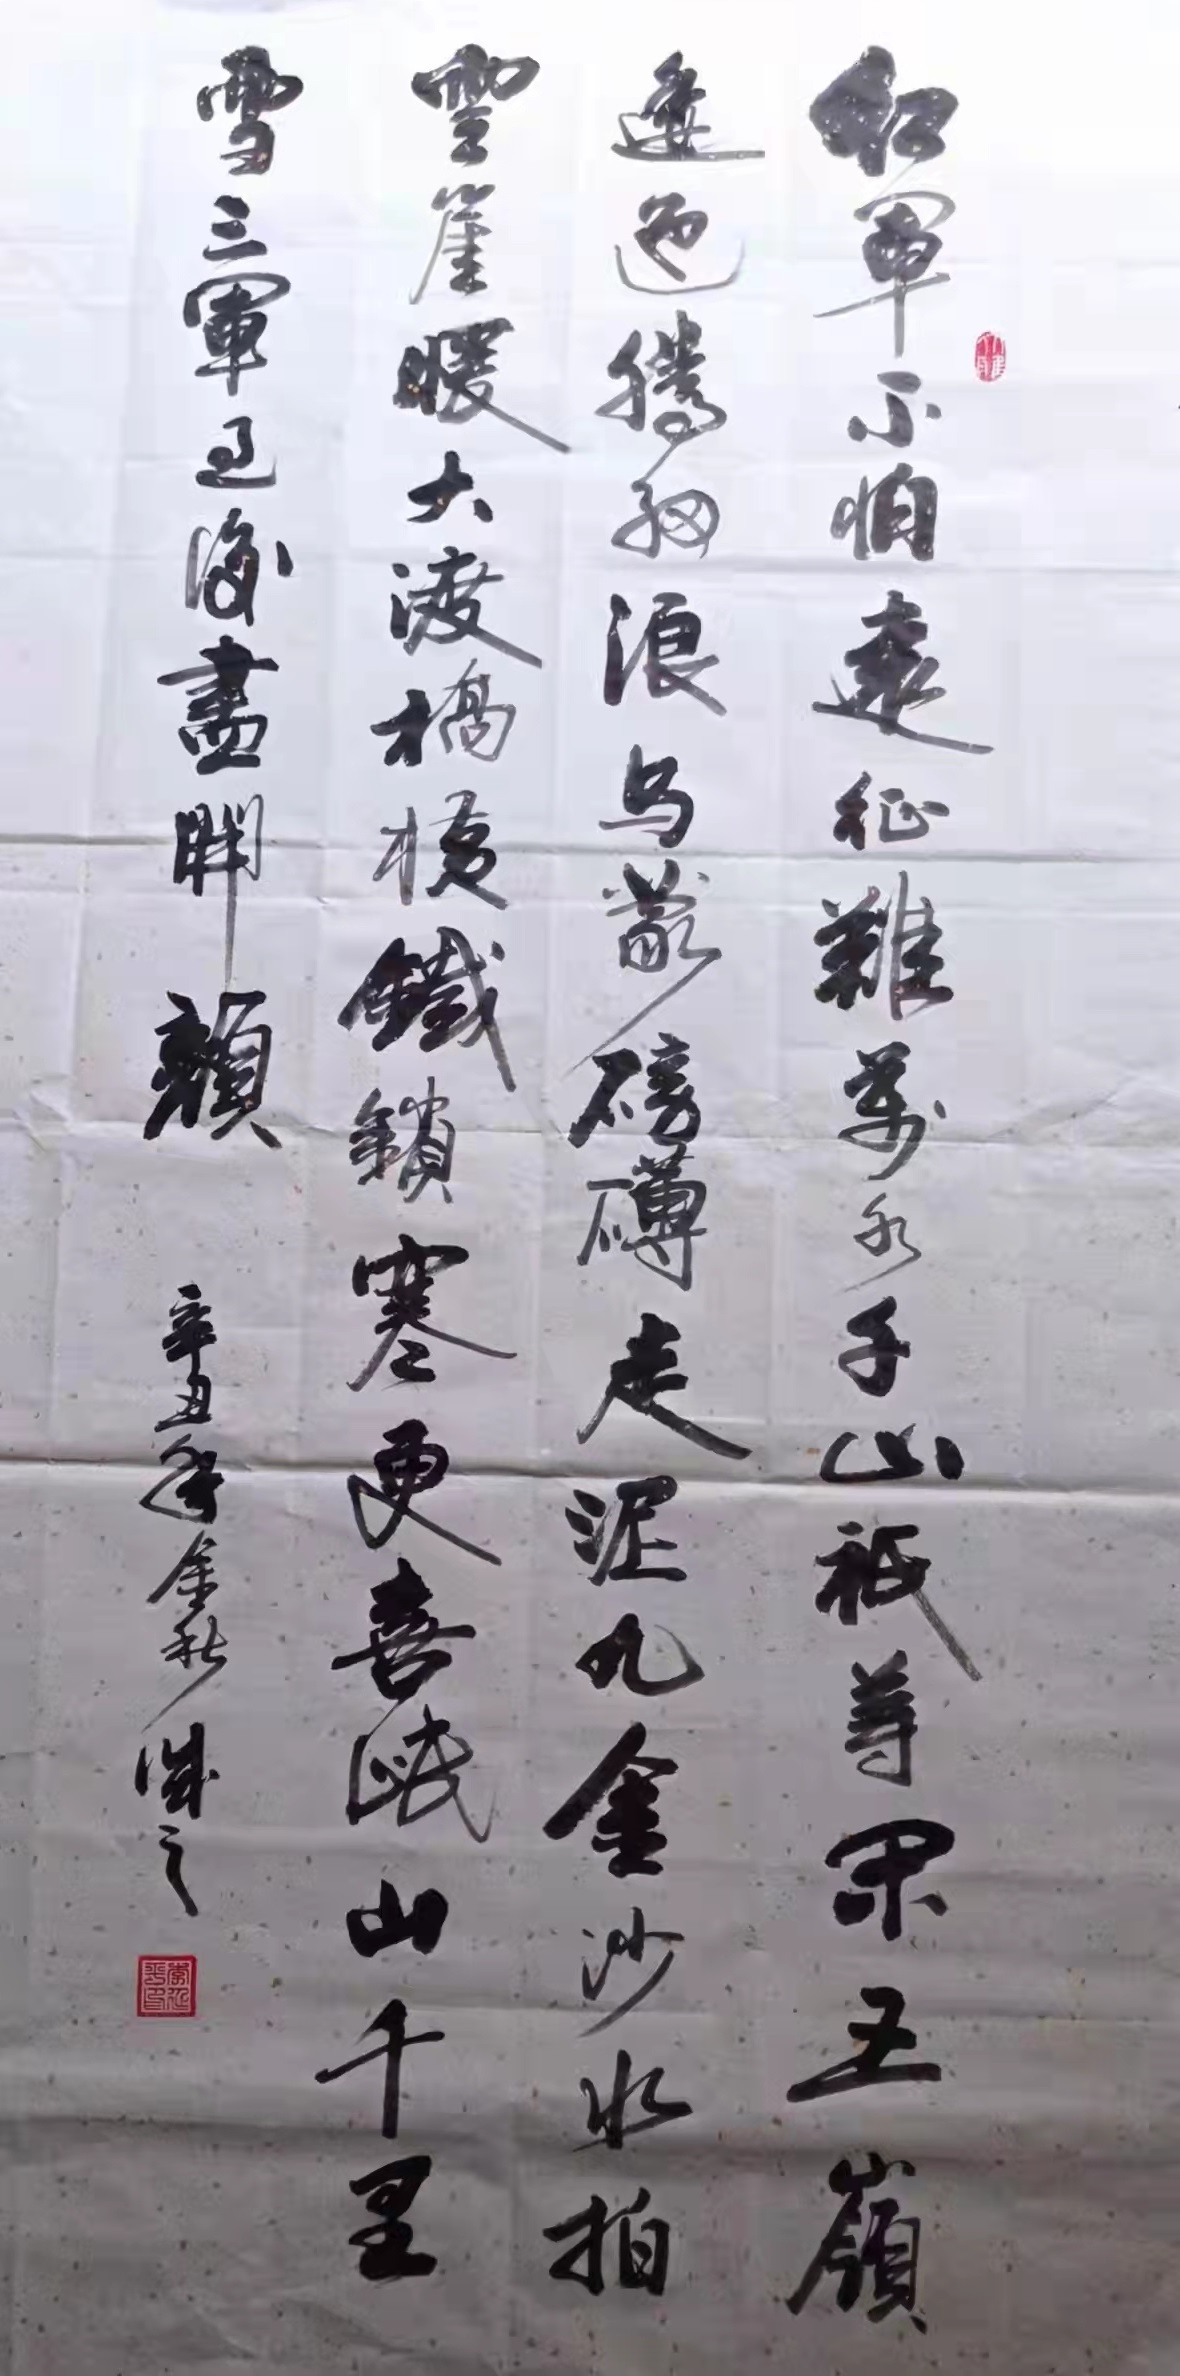 紅軍不怕遠征難萬水千山祇等閑五嶺
逶迤騰細浪乌蒙磅礴走泥丸金沙水拍
雲崖暖大渡橋橫鐵鎖寒更喜岷山千里
雪三軍過後盡開顏
辛丑年金秋